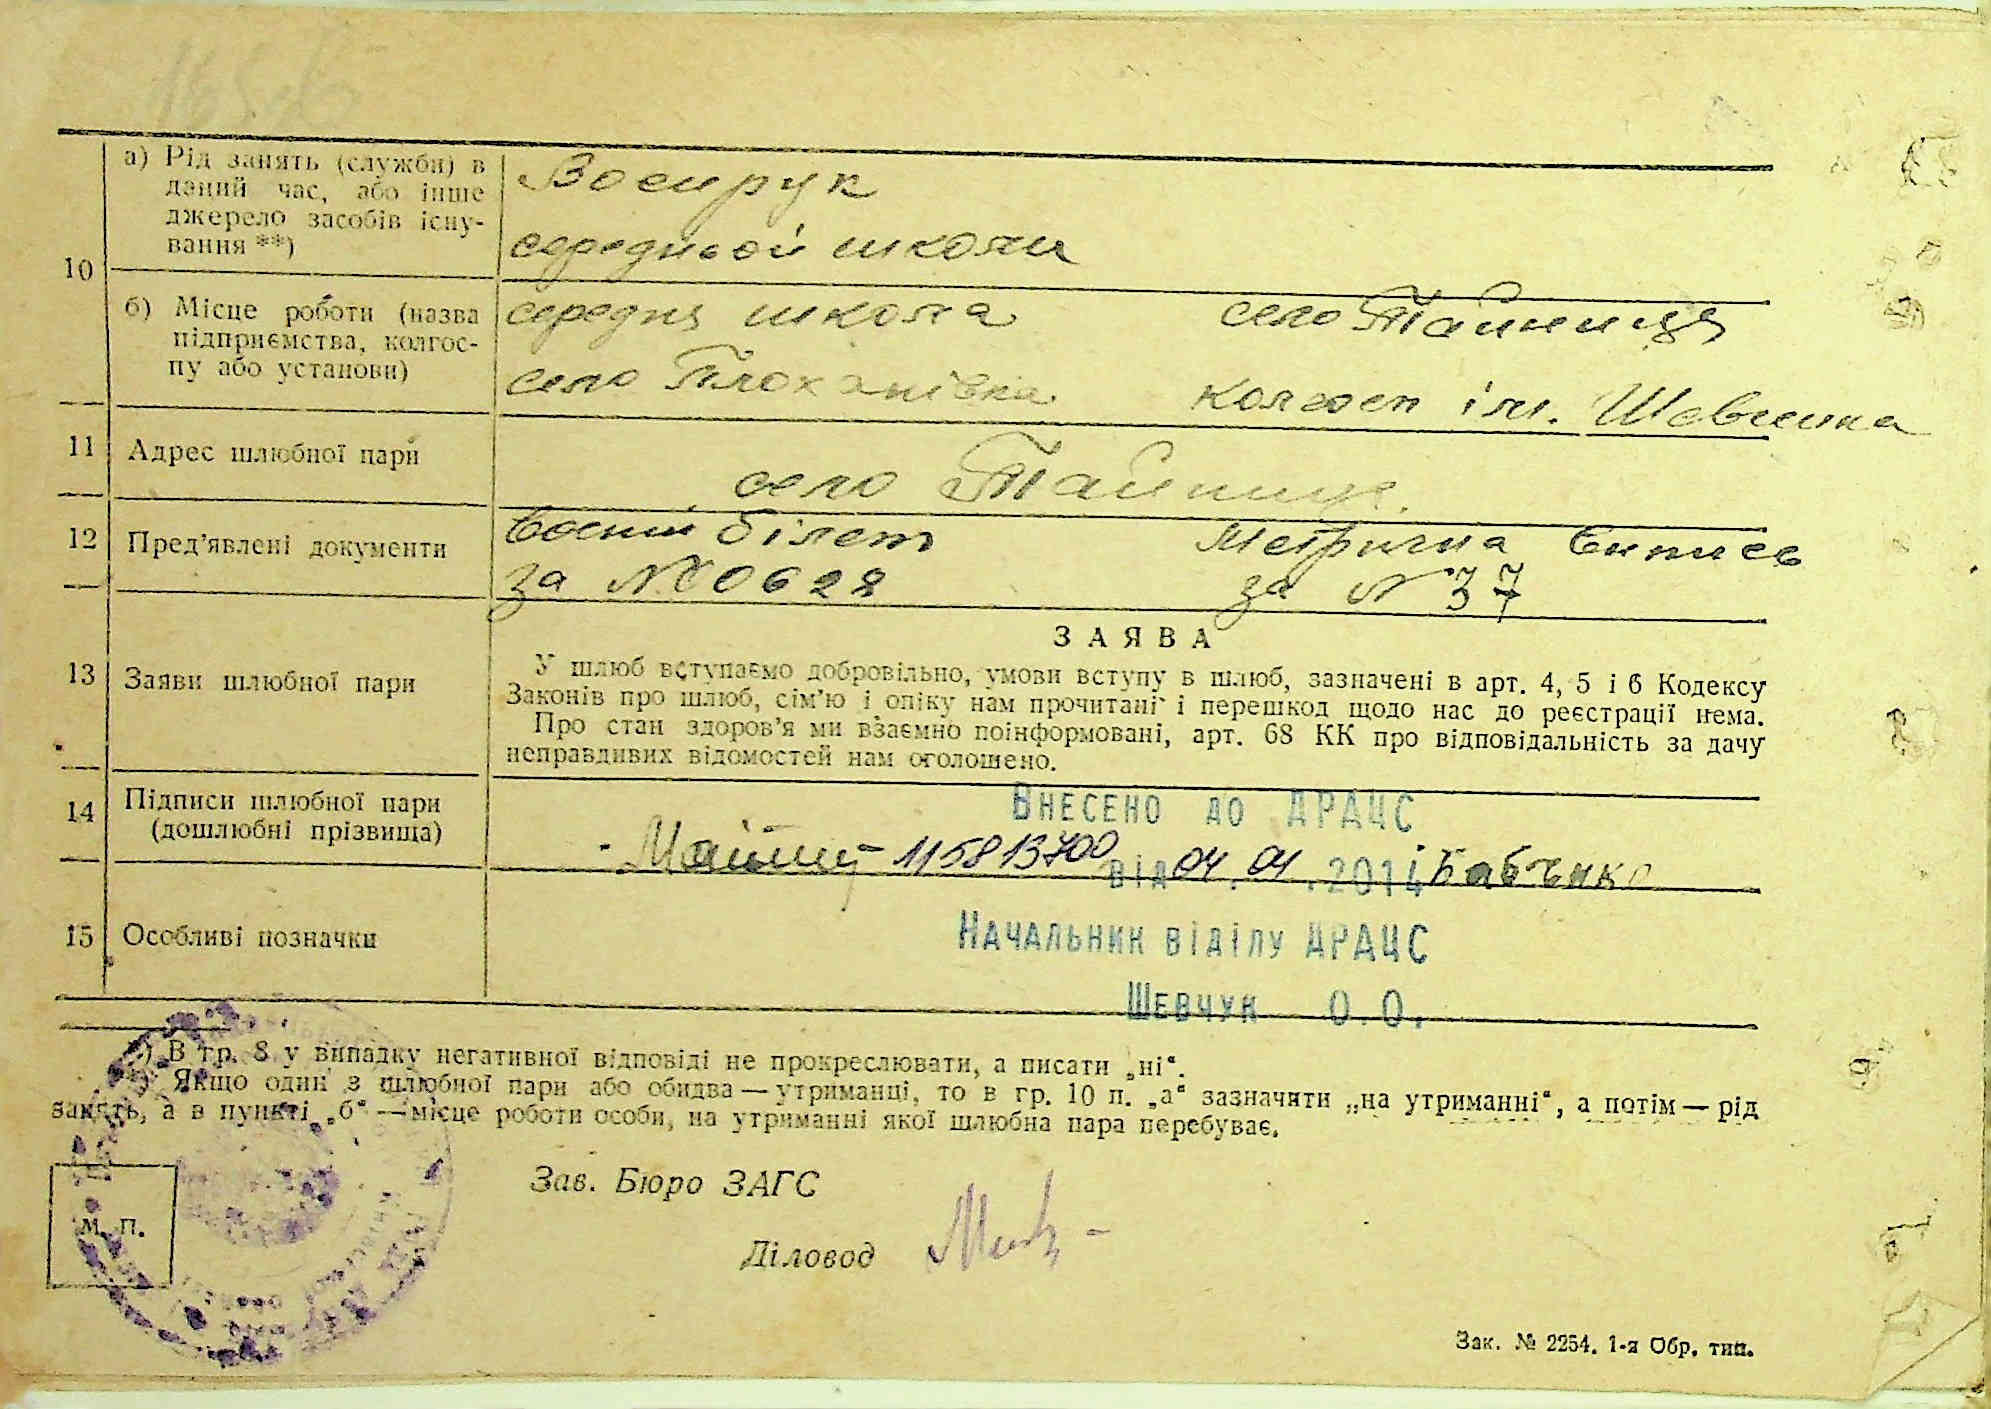 а) Рід занять (служби) в
даний час, або інше
джерело засобів існу-
вання **)
Воєнрук
середньой школи
10
б) Місце роботи (назва
підприємства, колгос-
пу або установи)
середня школа
село Плоханівка
село Тайниця
колгосп ім. Шевченка
11
Адрес шлюбної пари
село Тайниця
12
Пред'явлені документи
Воєний білет
за № 00628
Метрична Випись
за № 37
13
Заяви шлюбної пари
ЗАЯВА
У шлюб вступаємо добровільно, умови вступу в шлюб, зазначені в арт. 4, 5 і 6 Кодексу
Законів про шлюб, сім'ю і опіку нам прочитані і перешкод щодо нас до реєстрації нема.
Про стан здоров'я ми взаємно поінформовані, арт. 68 КК про відповідальність за дачу
неправдивих відомостей нам оголошено.
14
Підписи шлюбної пари
(дошлюбні прізвища)
Внесено до ДРАЦС
115813700
від 04.01.2014
Бабченко
15
Особливі позначки
Начальник відділу ДРАЦС
Шевчук О.О.
*) В гр. 8 у випадку негативної відповіді не прокреслювати, а писати „ні“.
Якщо один з шлюбної пари або обидва — утриманці, то в гр. 10 п. „а“ зазначити „на утриманні“, а потім — рід
занять, а в пункті „б“ — місце роботи особи, на утриманні якої шлюбна пара перебуває.
Зав. Бюро ЗАГС
М. П.
Діловод
Зак. № 2254. 1-я Обр. тип.